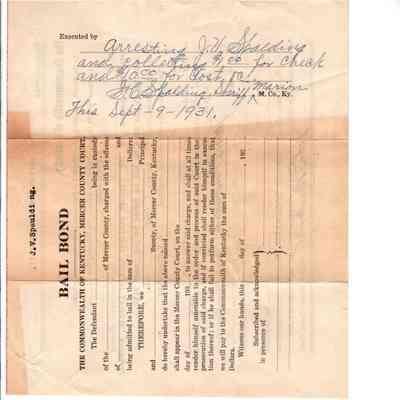 Executed by
arresting J.V. Spalding
and collecting
for check
and
for Cost,
Spalding Sheriff Marion
M. Co., Ky.
This Sept-9-1931.
J.V.Spauldi ng.
BAIL BOND
THE COMMONWEALTH OF KENTUCKY, MERCER COUNTY COURT.
The Defendant being in custody
of the of Mercer County, charged with the offense
of and
being admitted to bail in the sum of Dollars:
THEREFORE, we Principal
and Surety, of Mercer County, Kentucky,
do hereby undertake that the above named
shall appear in the Mercer County Court, on the
day of 193 , to answer said charge, and shall at all times
render himself amenable to the order and process of said Court in the
prosecution of said charge, and if convicted shall render himself in execu-
tion thereof; or if he shall fail to perform either of these conditions, that
we will pay to the Commonwealth of Kentucky the sum of
Dollars.
Witness our hands, this day of 192
Subscribed and acknowledged
in presence of